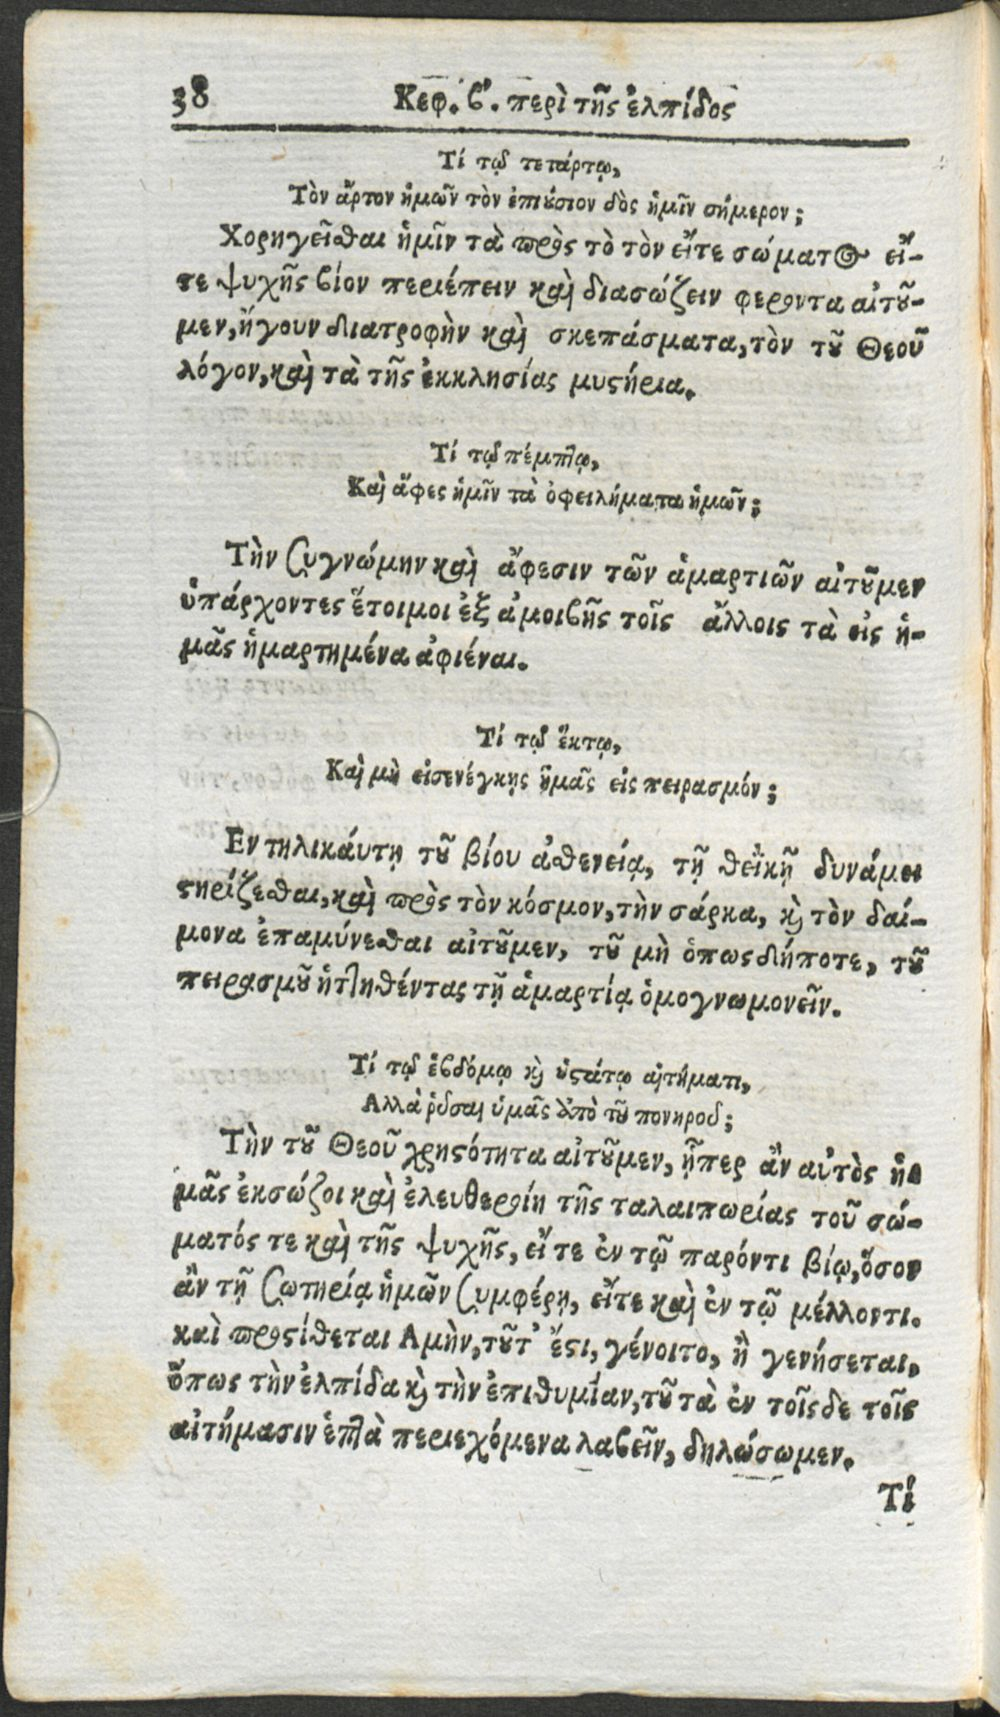 38 Κεφ. β'. περὶ τῆς ἐλπίδος
Τί τῷ τετάρτῳ,
Τὸν ἄρτον ἡμῶν τὸν ἐπιούσιον δὸς ἡμῖν σήμερον;
Χορηγεῖσθαι ἡμῖν τὰ πρὸς τὸ τὸν εἴτε σώματος εἴ-
τε ψυχῆς βίον περιέπειν καὶ διασώζειν φεροντα αἰτοῦ-
μεν, ἤγουν διατροφὴν καὶ σκεπάσματα, τὸν τοῦ Θεοῦ
λόγον, καὶ τὰ τῆς ἐκκλησίας μυστήρια.
Τί τῷ πέμπτῳ,
Καὶ ἄφες ἡμῖν τὰ ὀφειλήματα ἡμῶν;
Τὴν συγνώμην καὶ ἄφεσιν τῶν ἁμαρτιῶν αἰτοῦμεν
ὑπάρχοντες ἕτοιμοι ἐξ ἀμοιβῆς τοῖς ἄλλοις τὰ εἰς ἡ-
μᾶς ἡμαρτημένα ἀφιέναι.
Τί τῷ ἕκτῳ,
Καὶ μὴ εἰσενέγκῃς ἡμᾶς εἰς πειρασμόν;
Εν τηλικάυτῃ τοῦ βίου ἀσθενείᾳ, τῇ θεϊκῇ δυνάμει
στηρίζεσθαι, καὶ πρὸς τὸν κόσμον, τὴν σάρκα, καὶ τὸν δαί-
μονα ἐπαμύνεσθαι αἰτοῦμεν, τοῦ μὴ ὁπωσδήποτε, τοῦ
πειρασμοῦ ἡττηθέντας τῇ ἁμαρτίᾳ ὁμογνωμονεῖν.
Τί τῷ ἑβδόμῳ καὶ ὑστάτῳ αἰτήματι,
Αλλὰ ῥῦσαι ὑμᾶς ἀπὸ τοῦ πονηροῦ;
Τὴν τοῦ Θεοῦ χρηστότητα αἰτοῦμεν, ᾗπερ ἂν αὐτὸς ἡ-
μᾶς ἐκσώζοι καὶ ἐλευθεροίη τῆς ταλαιπωρίας τοῦ σώ-
ματός τε καὶ τῆς ψυχῆς, εἴτε ἐν τῷ παρόντι βίῳ, ὅσον
ἂν τῇ σωτηρίᾳ ἡμῶν συμφέρῃ, εἴτε καὶ ἐν τῷ μέλλοντι.
καὶ προστίθεται Αμὴν, τοῦτ' ἔστι, γένοιτο, ἢ γενήσεται,
ὅπως τὴν ἐλπίδα καὶ τὴν ἐπιθυμίαν, τοῦ τὰ ἐν τοῖς δε τοῖς
αἰτήμασιν ἑπτὰ περιεχόμενα λαβεῖν, δηλώσωμεν.
Τί